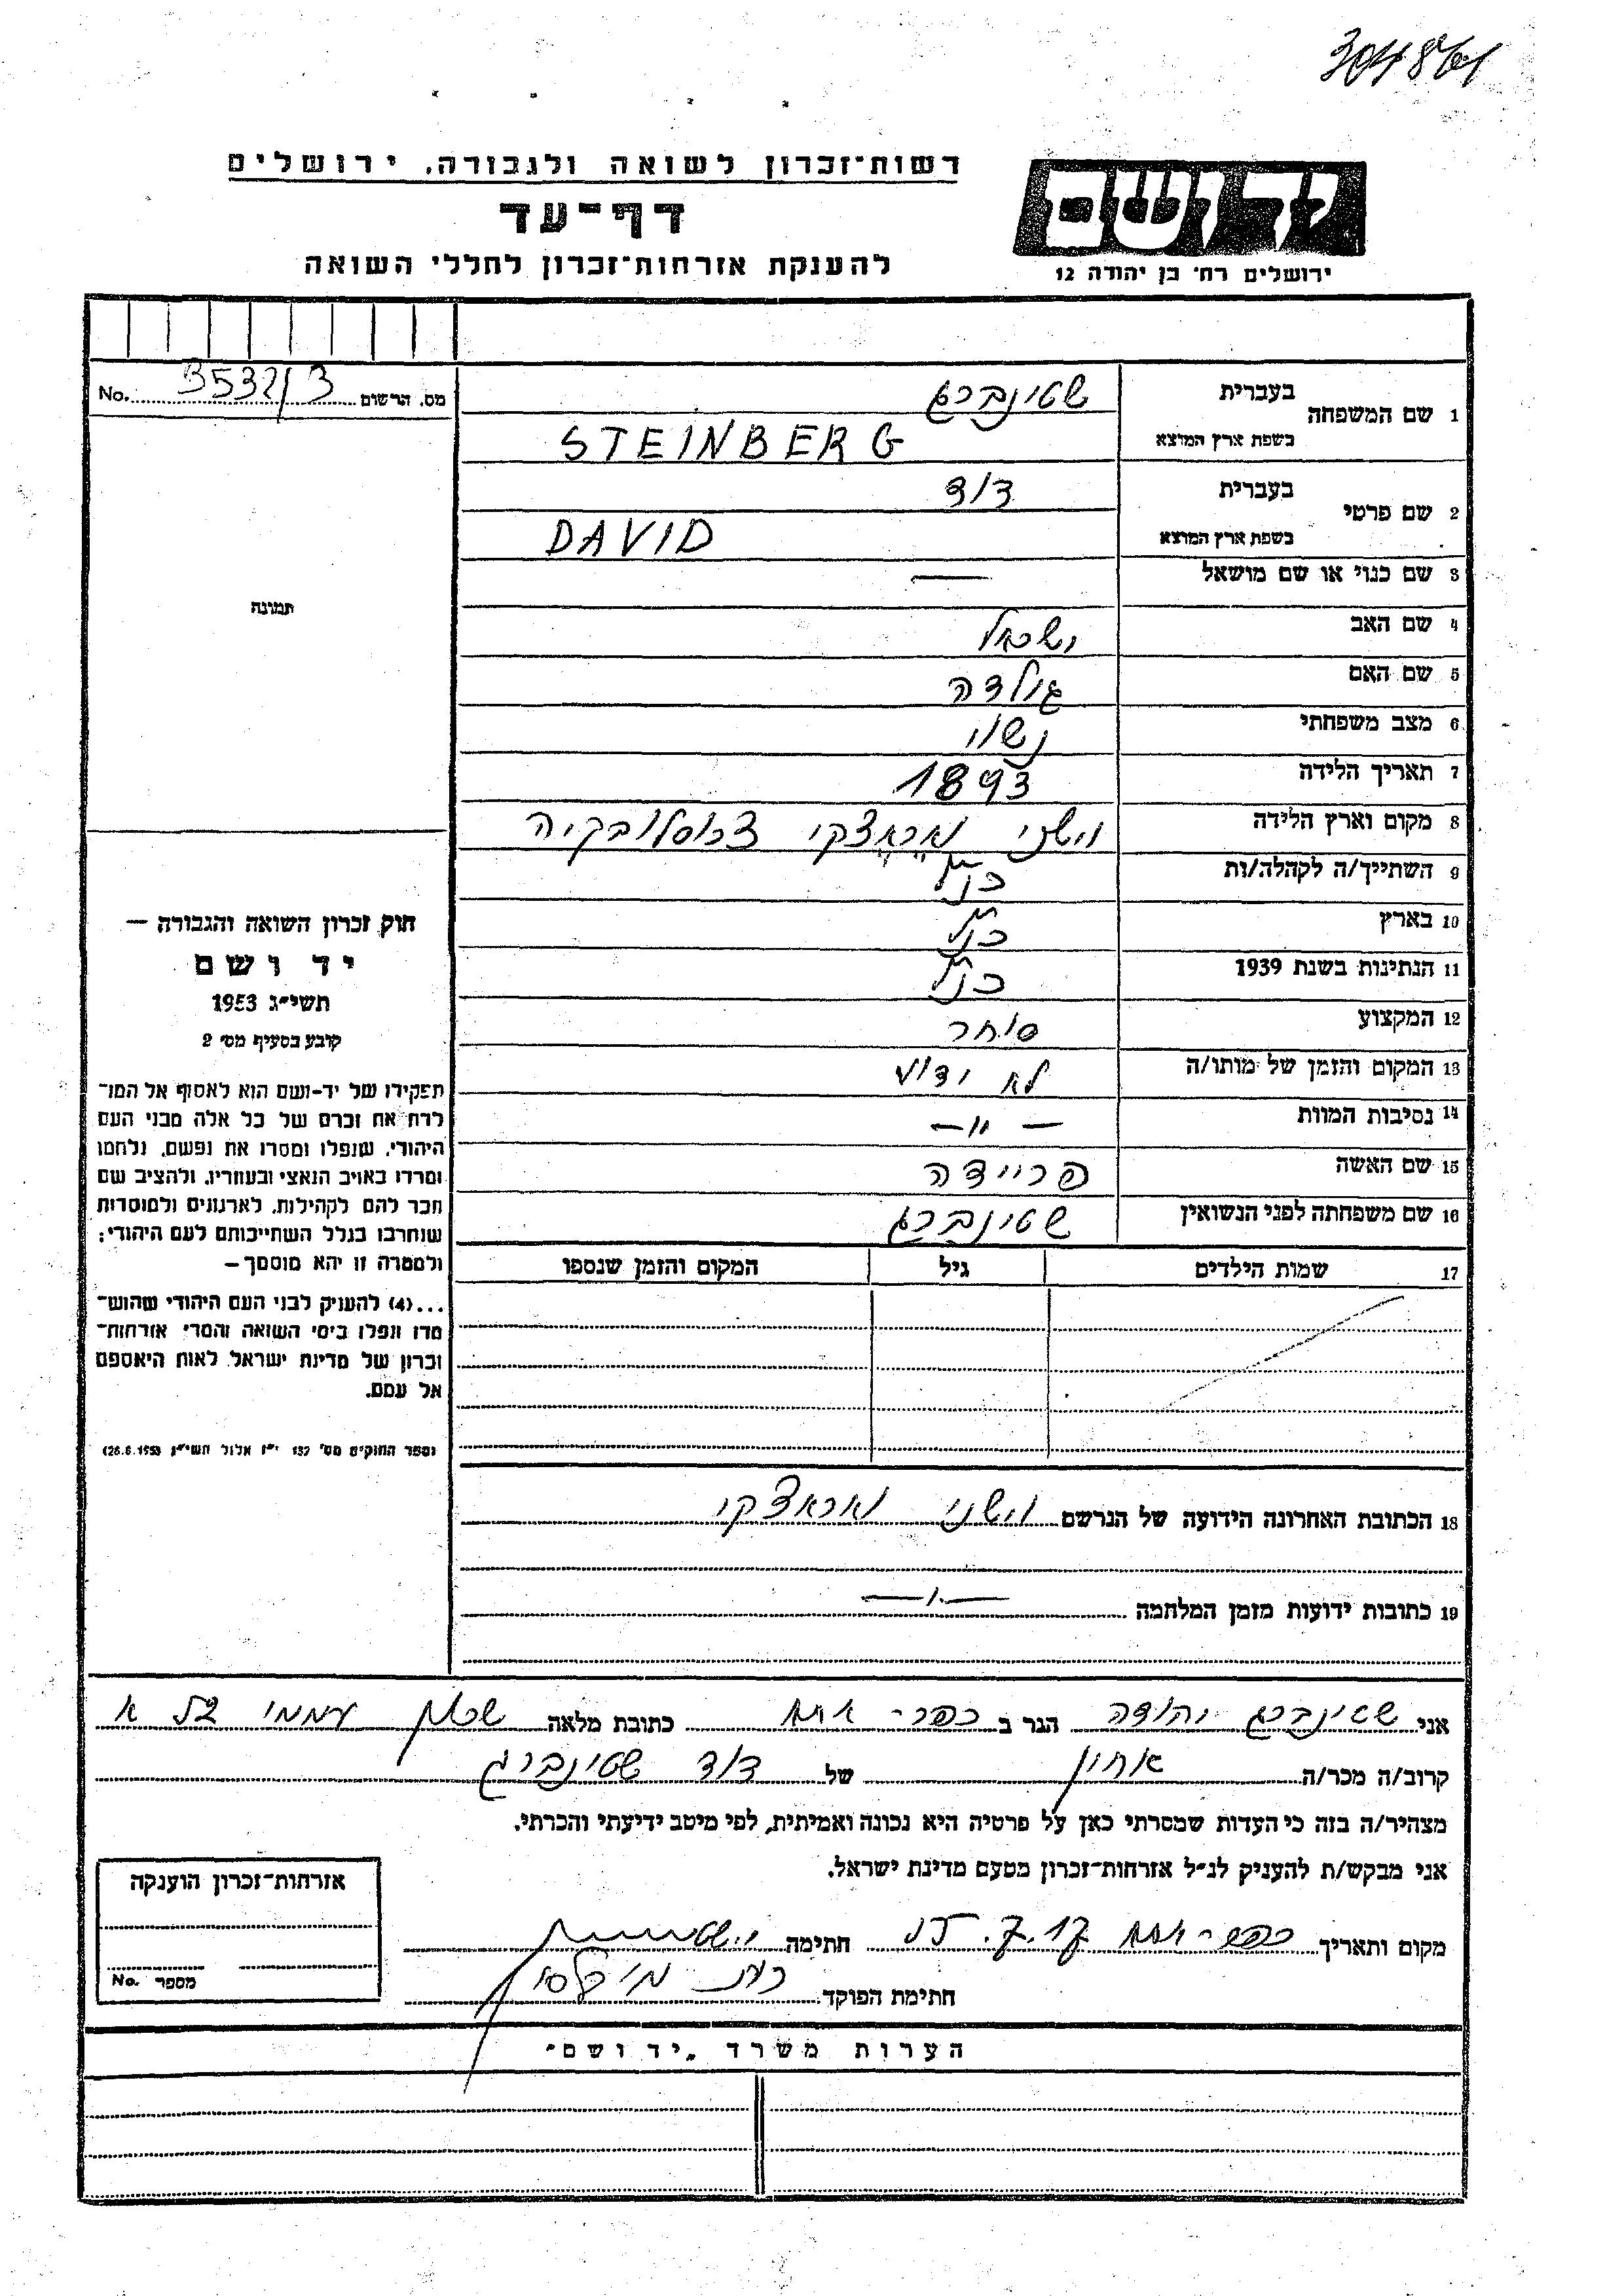 304861
רשות־זכרון לשואה ולגבורה, ירושלים
דף־עד
להענקת אזרחות־זכרון לחללי השואה
ידושם
ירושלים רח׳ בן יהודה 12
מס. הרשום 3532/3 No.
1 שם המשפחה
בעברית שטינברג
בשפת ארץ המוצא STEINBERG
2 שם פרטי
בעברית דוד
בשפת ארץ המוצא DAVID
3 שם כנוי או שם מושאל —
4 שם האב ישראל
5 שם האם גולדה
6 מצב משפחתי נשוי
7 תאריך הלידה 1893
8 מקום וארץ הלידה וישני צכוסלובקיה
9 השתייך/ה לקהלה/ות כנ״ל
10 בארץ כנ״ל
11 הנתינות בשנת 1939 כנ״ל
12 המקצוע סוחר
13 המקום והזמן של מותו/ה לא ידוע
14 נסיבות המוות — ״ —
15 שם האשה פריידה
16 שם משפחתה לפני הנשואין שטינברג
17 שמות הילדים גיל המקום והזמן שנספו
18 הכתובת האחרונה הידועה של הנרשם וישני
19 כתובות ידועות מזמן המלחמה
תמונה
חוק זכרון השואה והגבורה —
יד ושם
תשי״ג 1953
קובע בסעיף מס׳ 2
תפקידו של יד-ושם הוא לאסוף אל המו־
לדת את זכרם של כל אלה מבני העם
היהודי, שנפלו ומסרו את נפשם, נלחמו
ומרדו באויב הנאצי ובעוזריו, ולהציב שם
וזכר להם לקהילות, לארגונים ולמוסדות
שנחרבו בגלל השתייכותם לעם היהודי;
ולמטרה זו יהא מוסמך —
...(4) להעניק לבני העם היהודי שהוש־
מדו ונפלו בימי השואה והמרי אזרחות־
זכרון של מדינת ישראל לאות היאספם
אל עמם.
(ספר החוקים מס׳ 132 י״ז אלול תשי״ג 28.8.1953)
אני שטינברג יהודה הגר ב כפר־אתא כתובת מלאה שכון עממי א
קרוב/ה מכר/ה אחיון של דוד שטינברג
מצהיר/ה בזה כי העדות שמסרתי כאן על פרטיה היא נכונה ואמיתית, לפי מיטב ידיעתי והכרתי.
אני מבקש/ת להעניק לנ״ל אזרחות־זכרון מטעם מדינת ישראל.
מקום ותאריך כפר־אתא חתימה
חתימת הפוקד
אזרחות־זכרון הוענקה
מספר No.
הערות משרד „יד ושם״